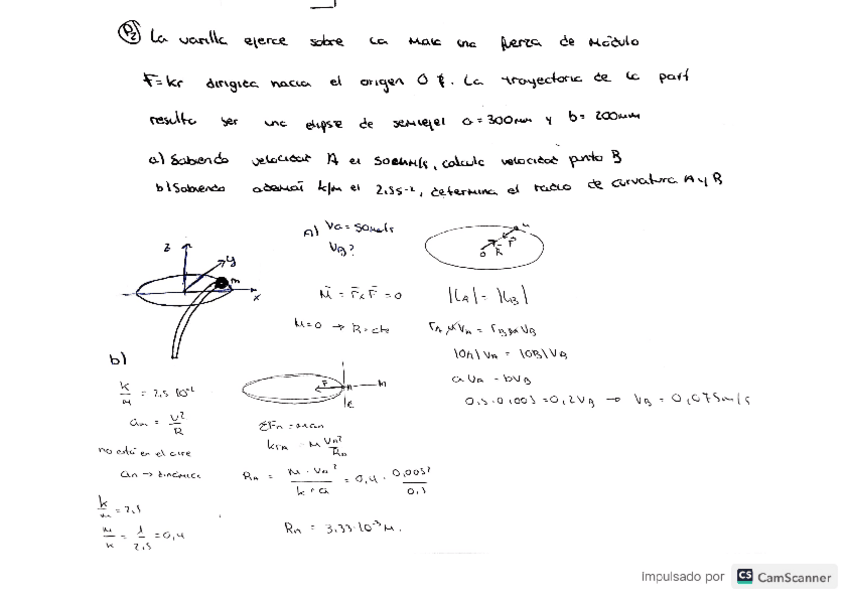 P2 La varilla ejerce sobre la masa una fuerza de módulo
F=kr dirigida hacia el origen O. La trayectoria de la part
resulta ser una elipse de semiejes a=300mm y b=200mm
a) Sabiendo velocidad A es 50mm/s, calcula velocidad punto B
b) Sabiendo además k/m es 2.5s⁻², determina el radio de curvatura A y B
a) Va = 50mm/s
VB?
z
y
m
x
M = r x F = 0
M=0 → R=cte
|LA| = |LB|
rA m VA = rB m VB
|OA| VA = |OB| VB
a VA = b VB
VB = 0,075m/s
b)
an = V²/R
no está en el aire
an → dinámica
k/m = 2,5
m/k = 1/2,5 = 0,4
ΣFn = m·an
k rA = m VA²/RA
= 0,4 ·
= 3.33·10⁻³ m.
Impulsado por CS CamScanner